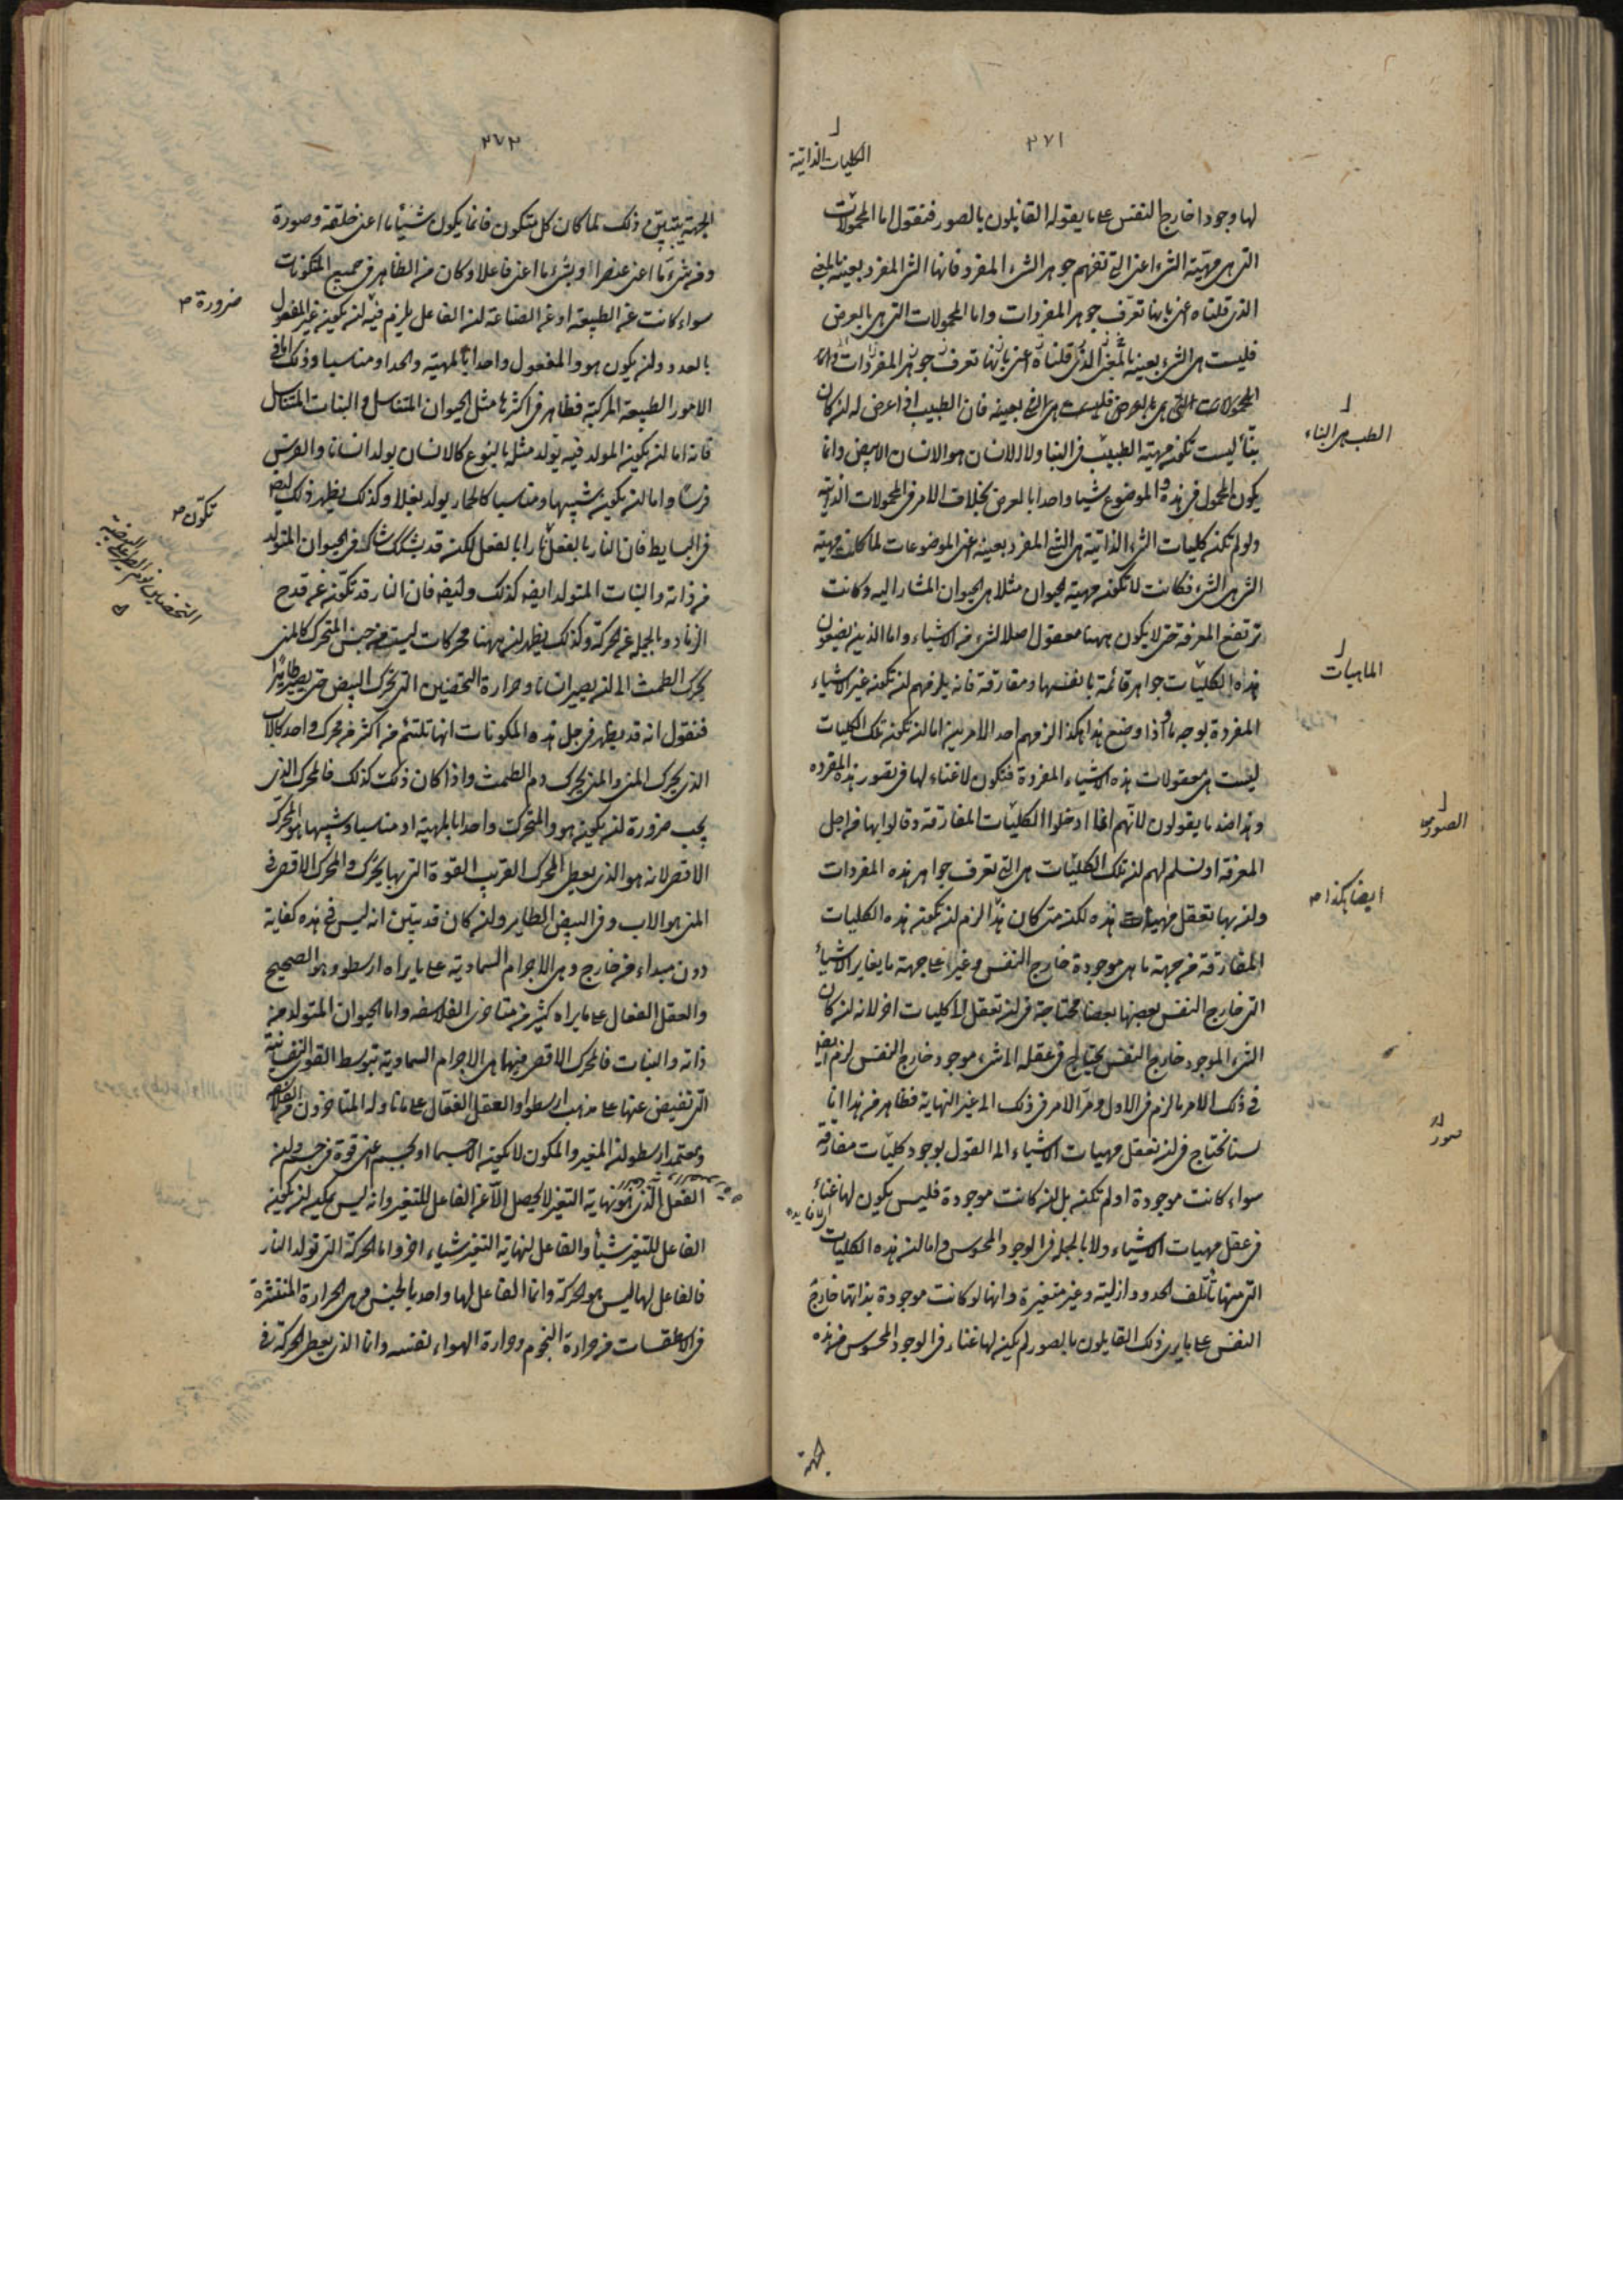 ٢٧١
الكليات الذاتية
لها وجودا خارج النفس على ما يقوله القايلون بالصور فنقول اما المحمولات
التى هى مهيّة الشىء اعنى التى تفهم جوهر الشىء المفرد فانها الشىء المفرد بعينه بالمعنى
الذى قلناه اعنى بانها تعرّف جوهر المفردات واما المحمولات التى هى بالعرض
فليست هى الشىء بعينه بالمعنى الذى قلناه اعنى بانها تعرف جوهر المفردات واما
المحمولات التى هى بالعرض فليست هى الشىء بعينه فان الطبيب اذا عرض له ان كان
بنّأ ليست تكون مهية الطبيب هى البنا ولا الانسان هو الانسان الابيض وانما
يكون المحمول فى هذه والموضوع شيا واحدا بالعرض بخلاف الامر فى المحمولات الذاتية
ولو لم تكن كليات الشىء الذاتية هى الشىء المفرد بعينه اعنى الموضوعات لما كان مهية
الشىء هى الشىء فكانت لا تكون مهية الحيوان مثلا هى الحيوان المشار اليه وكانت
ترتفع المعرفة حتى لا يكون ههنا معقول اصلا لشىء من الاشياء واما الذين يضعون
هذه الكليّات جواهر قائمة بانفسها ومفارقة فانه يلزمهم ان تكون غير الاشياء
المفردة بوجه ما واذا وضع هذا هكذا لزمهم احد الامرين اما ان تكون تلك الكليات
ليست هى معقولات هذه الاشياء المفردة فتكون لا غناء لها فى تصور هذه المفرده
وهذا ضد ما يقولون لانّهم انما ادخلوا الكليّات المفارقة وقالوا بها من اجل
المعرفة او نسلم لهم ان تلك الكليّات هى التى تعرف جواهر هذه المفردات
وان بها تعقل مهيات هذه لكن متى كان هذا لزم ان تكون هذه الكليات
المفارقة من جهة ما هى موجودة خارج النفس وغيرا على جهة ما يغاير الاشياء
التى خارج النفس بعضها بعضا محتاجة فى ان تعقل الى كليات اخر لانه ان كان
الشىء الموجود خارج النفس يحتاج فى عقله الى شىء موجود خارج النفس لزم ايضا
فى ذلك الامر ما لزم فى الاول ومرّ الامر فى ذلك الى غير النهاية فظاهر من هذا انا
لسنا نحتاج فى ان نعقل مهيات الاشياء الى القول بوجود كليّات مفارقة
سواء كانت موجودة او لم تكن بل ان كانت موجودة فليس يكون لها غناء
فى عقل مهيات الاشياء ولا بالجملة فى الوجود المحسوس واما ان هذه الكليات
التى منها تأتلف الحدود ازلية وغير متغيرة وانها لو كانت موجودة بذاتها خارج
النفس على ما يرى ذلك القايلون بالصور لم يكن لها غناء فى الوجود المحسوس فمن هذه
الطب هى البناء
الماهيات
الصور
ايضا هكذا ص
اى لا فايده
الجهة
٢٧٢
الجهة يتبيّن ذلك لما كان كل متكون فانما يكون شيأ ما اعنى خلقة وصورة
ومن شىء ما اعنى عنصرا وبشىء ما اعنى فاعلا وكان من الظاهر فى جميع المتكونات
سواء كانت عن الطبيعة او عن الصناعة ان الفاعل يلزم فيه ان يكون غير المفعول
بالعدد وان يكون هو والمفعول واحدا بالمهية والحد او مناسبا وذلك اما فى
الامور الطبيعية المركبة فظاهر فى اكثرها مثل الحيوان المتناسل والنبات المتناسل
فانه اما ان يكون المولد فيه يولد مثله بالنوع كالانسان يولد انسانا والفرس
فرسًا واما ان يكون شبيها ومناسبا كالحمار يولد بغلا وكذلك يظهر ذلك ايضا
فى البسايط فان النار بالفعل نارا بالفعل لكن قد يشكك شاك فى الحيوان المتولد
من ذاته والنبات المتولد ايضا كذلك وايضا فان النار قد تكون عن قدح
الزناد وبالجملة عن الحركة وكذلك يظهر ان ههنا محركات ليست من جنس المتحرك كالمنى
يحرك الطمث الى ان يصير انسانا وحرارة التحضين التى تحرك البيض حتى يصير طايرًا
فنقول انه قد يظهر فى جل هذه المكونات انها تلتئم من اكثر من محرك واحد كالاب
الذى يحرك المنى والمنى يحرك دم الطمث واذا كان ذلك كذلك فالمحرك الذى
يجب ضرورة ان يكون هو والمتحرك واحدا بالمهية او مناسبا وشبيها هو المحرك
الاقصى لانه هو الذى يعطى المحرك القريب القوة التى بها يحرك والمحرك الاقصى فى
المنى هو الاب وفى البيض الطاير وان كان قد يتبين انه ليس فى هذه كفاية
دون مبداء من خارج وهى الاجرام السماوية على ما يراه ارسطو وهو الصحيح
والعقل الفعال على ما يراه كثير من متاخرى الفلاسفه واما الحيوان المتولد من
ذاته والنبات فالمحرك الاقصى فيها هى الاجرام السماوية بتوسط القوى النفسانية
التى تفيض عنها على مذهب ارسطو او العقل الفعّال على ما تاوله المتاخرون من الفلاسفة
ومعتمد ارسطو ان المغير والمكون لا يكون الا جسما او بجسم اعنى قوة فى جسم وان
الفعل الّذى هو نهاية التغير لا يحصل الّا عن الفاعل للتغير وانه ليس يمكن ان يكون
الفاعل للتغير شيأ والفاعل لنهاية التغير شياء اخر واما الحركة التى تولد النار
فالفاعل لها ليس هو الحركة وانما الفاعل لها واحد بالجنس وهى الحرارة المنتشرة
فى الاسطقسات من حرارة النجوم وحرارة الهواء لنفسه وانما الذى يعطى الحركة فى
ضرورة ص
تكون ص